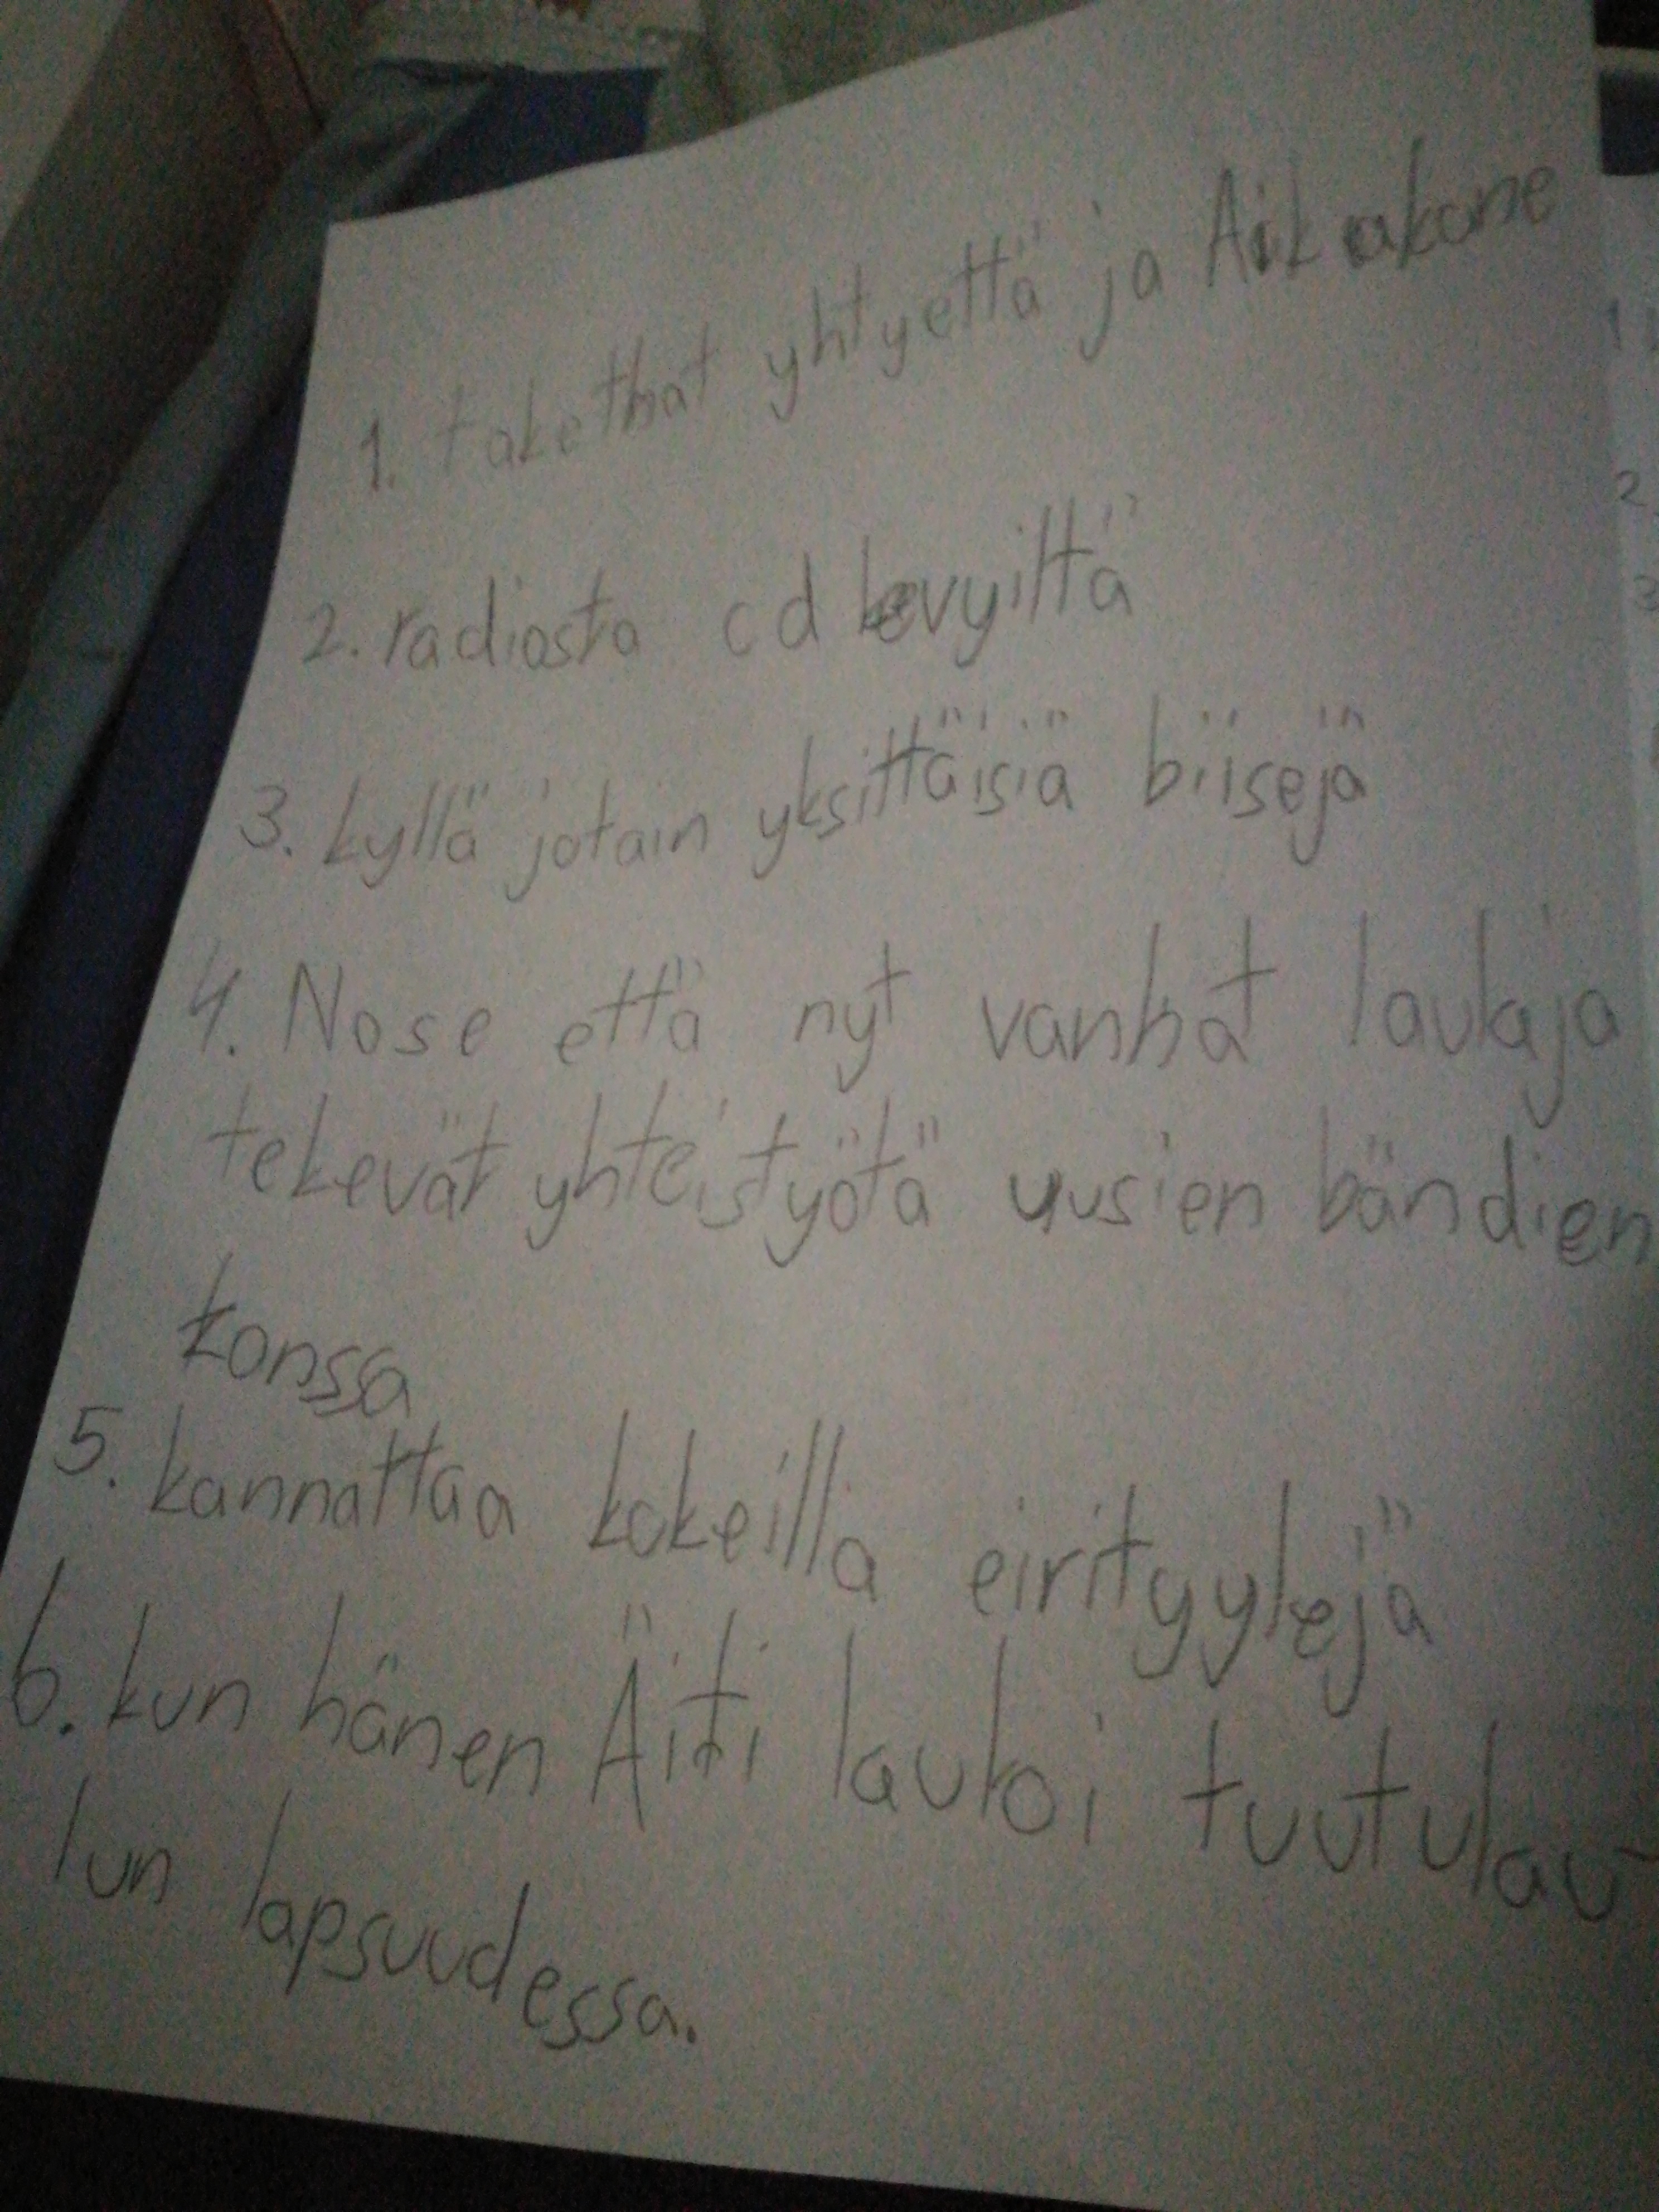 1. take that yhtyettä ja Aikakone
2. radiosta cd levyiltä
3. kyllä jotain yksittäisiä biisejä
4. No se että nyt vanhat laulaja
tekevät yhteistyötä uusien bändien
konssa
5. kannattaa kokeilla eirityylejä
6. kun hänen Äiti lauloi tuutulau-
lun lapsuudessa.
1
2
3